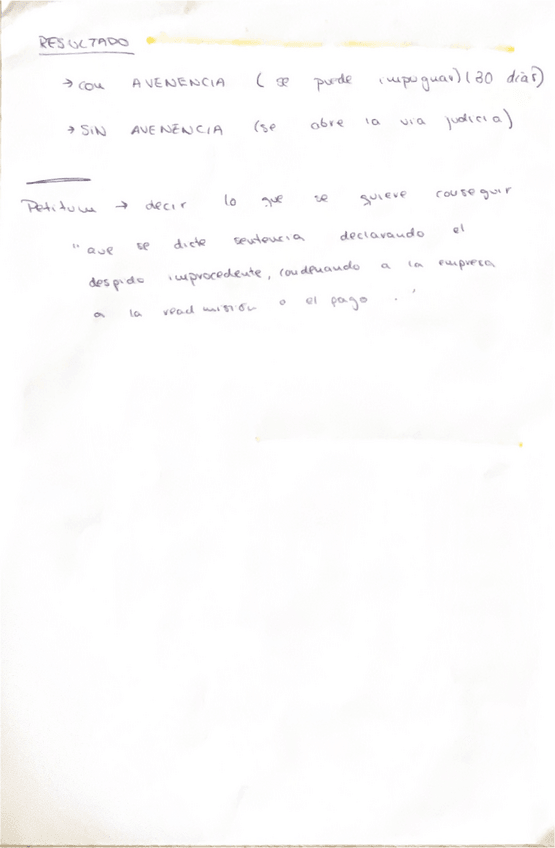 RESULTADO
→ con AVENENCIA ( se puede impugnar) (30 días)
→ SIN AVENENCIA (se abre la via judicia)
Petitum → decir lo que se quiere conseguir
" que se dicte sentencia declarando el
despido improcedente, condenando a la empresa
a la readmisión o el pago . "